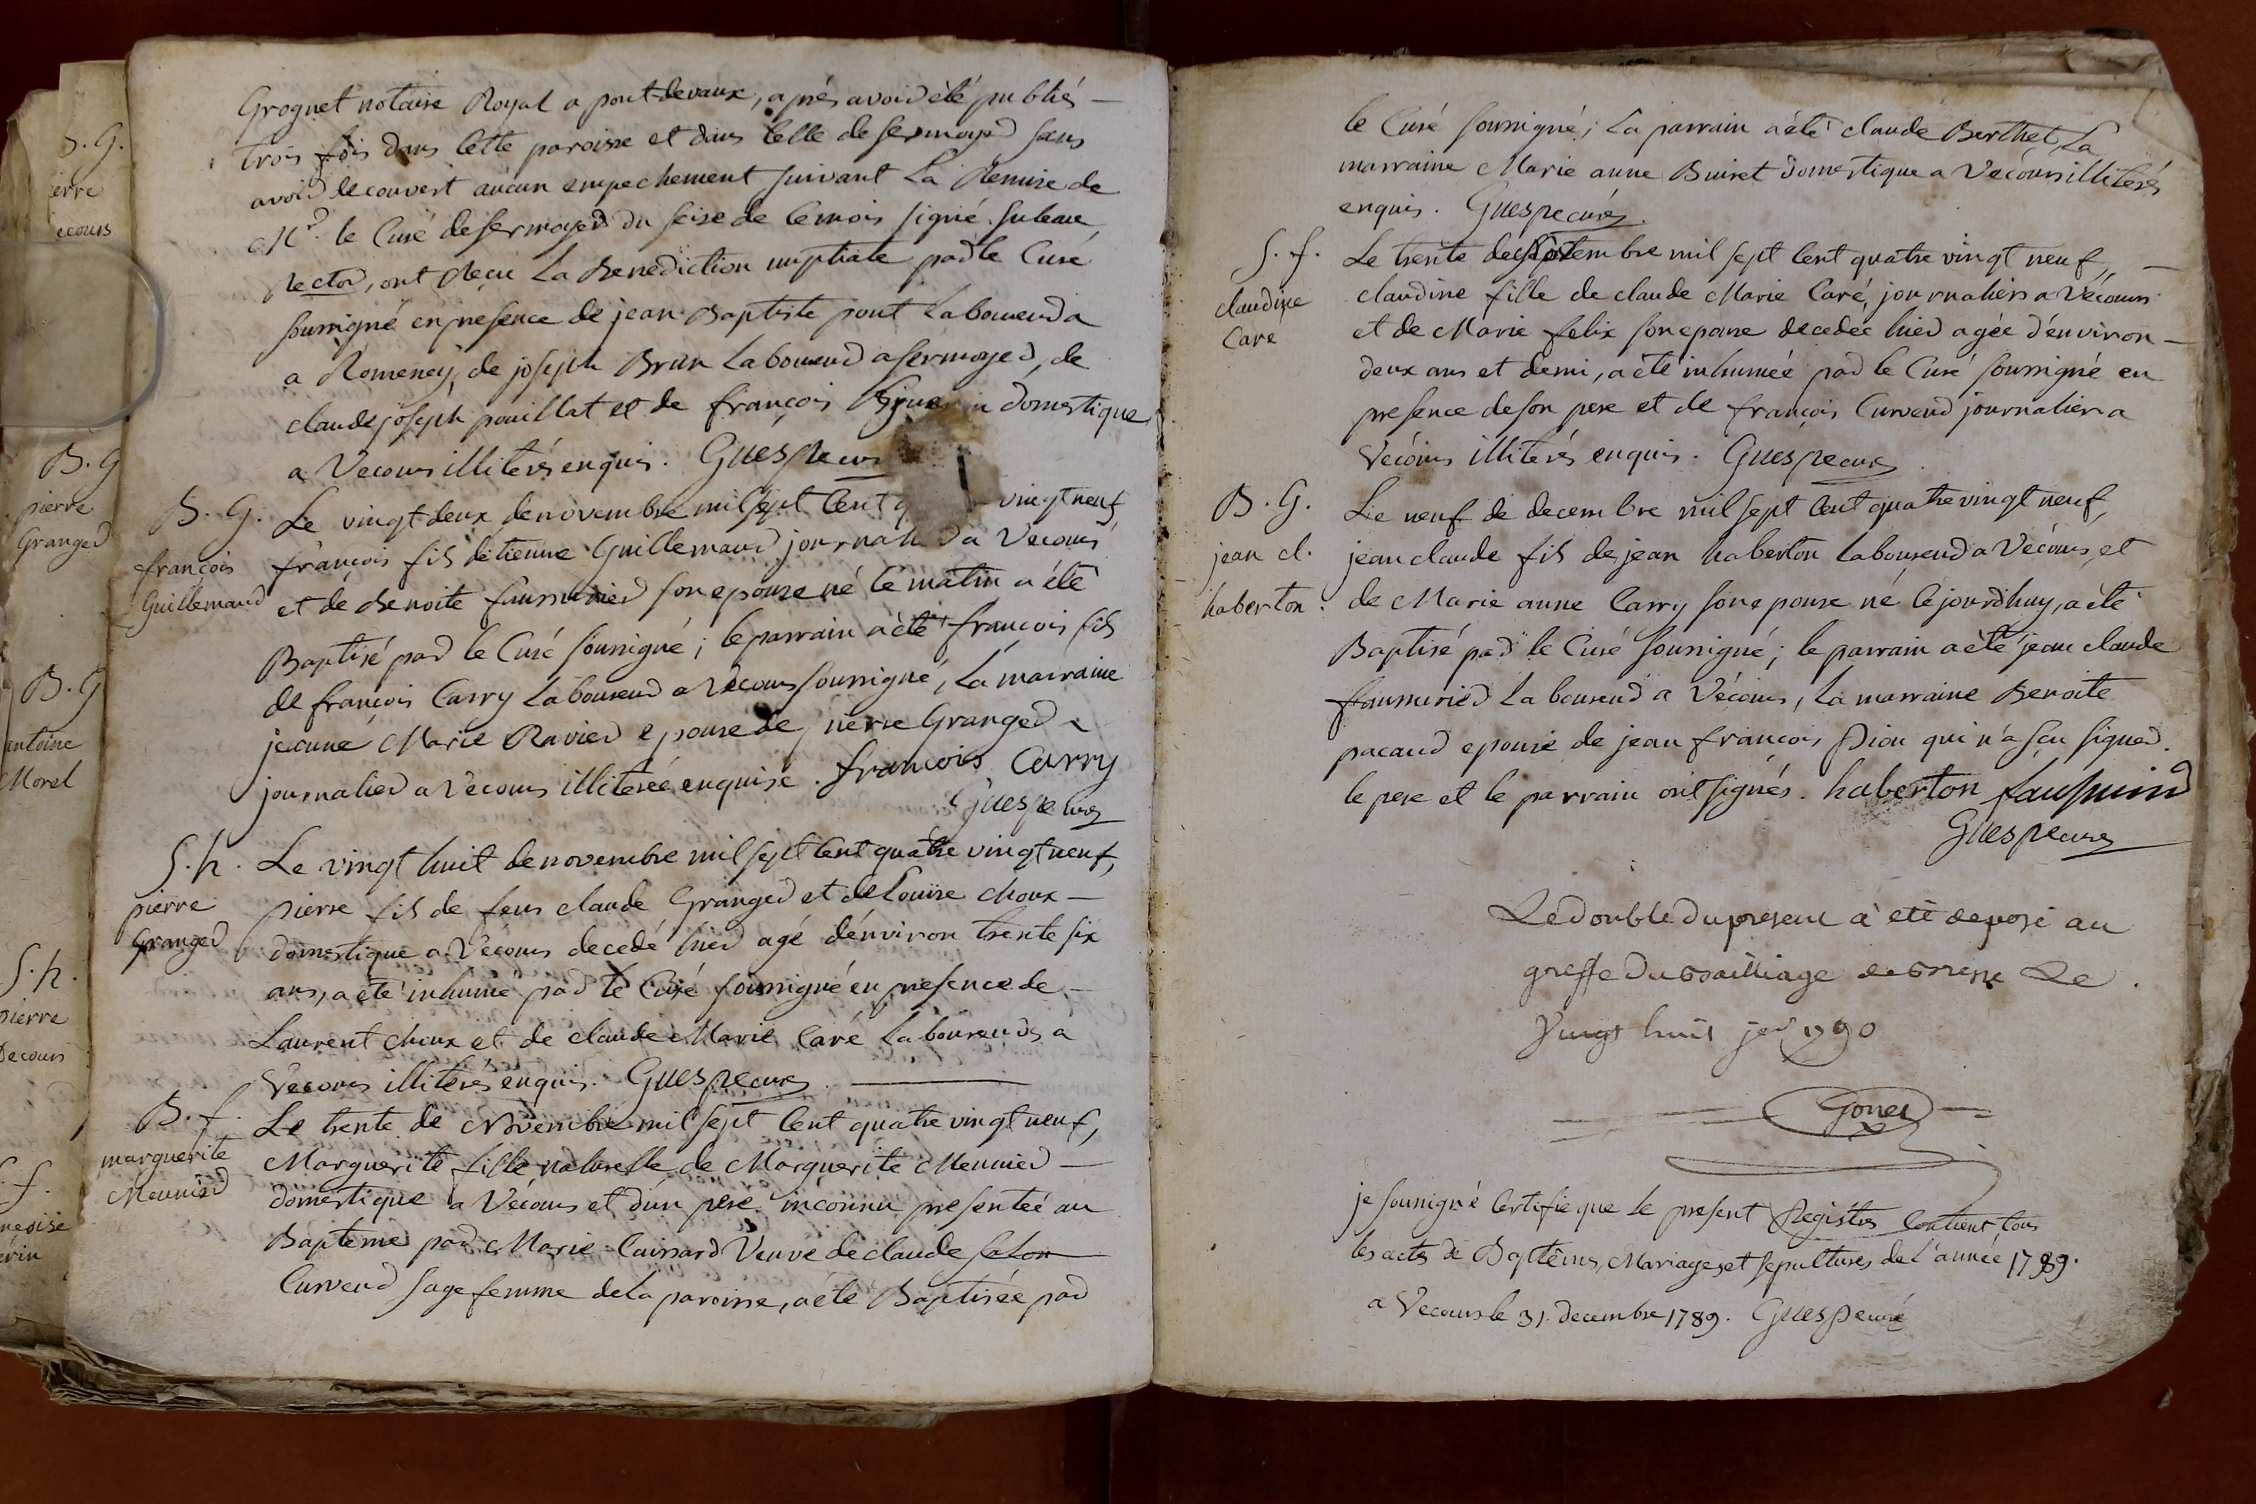 Grognet notaire Royal a pont-devaux, aprés avoir été publiés
trois fois dans cette paroisse et dans celle de sermoyer sans
avoir decouvert aucun empechement suivant la Remise de
Mr. le Curé de sermoyer du seise de ce mois signé
rector, ont Reçu La Benediction nuptiale par le Curé
soussigné en presence de jean Baptiste pont Laboureur a
a Romeneÿ, de joseph Brun Laboureur a sermoyer, de
claude joseph pouillat et de françois domestique
a Vecours illiterés enquis. Guespe curé
B. G.
françois
Guillemaud
Le vingt deux de novembre mil sept cent vingt neuf
françois fils detienne Guillemaud a Vécours
et de Benoite faussurier son epouse né ce matin a été
Baptisé par le Curé soussigné; le parrain a été françois fils
de françois Carry Laboureur a Vécours soussigné, La marraine
jeanne Marie Ravier epouse de pierre Granger
journalier a Vécours illiterée enquise. françois Carry
Guespe curé
S. h.
pierre
Granger
Le vingt huit de novembre mil sept cent quatre vingt neuf,
pierre fils de feus claude Granger et de Louise choux
domestique a Vécours decedé hier agé d'environ trente six
ans, a été inhumé par le Curé soussigné en presence de
Laurent choux et de claude Marie Caré Laboureurs a
Vécours illiterés enquis. Guespe curé
B. f.
marguerite
Meunier
Le trente de Novembre mil sept cent quatre vingt neuf,
Marguerite fille naturelle de Marguerite Meunier
domestique a Vécours et d'un pere inconnu presentée au
Bapteme par Marie Cuissard Veuve de claude
Curveur sage femme de la paroisse, a été Baptisée par
le Curé soussigné; La parrain a été claude Berthet, La
marraine Marie anne Buiret domestique a Vécours illiterés
enquis. Guespe curé
S. f.
claudine
Caré
Le trente de novembre mil sept cent quatre vingt neuf,
claudine fille de claude Marie Caré, journaliers a Vécours
et de Marie felix son epouse decedée hier agée d'environ
deux ans et demi, a été inhumée par le Curé soussigné en
presence de son pere et de françois Curveur journalier a
Vécours illiterés enquis. Guespe curé
B. G.
jean cl.
haberton
Le neuf de decembre mil sept cent quatre vingt neuf,
jean claude fils de jean haberton Laboureur a Vécours, et
de Marie anne Carry son epouse né ce jourdhuy, a été
Baptisé par le Curé soussigné; le parrain a été jean claude
faussurier Laboureur a Vécours, La marraine Benoite
pacaud epouse de jean françois Pion qui n'a sçu signer.
le pere et le parrain ont signés. haberton faussurier
Guespe curé
Le double du present a été deposé au
greffe du Bailliage de Bresse Le
Vingt huit jer 1790
je soussigné certifie que le present Registre contient tous
les actes de Baptêmes, Mariages, et sepultures de L'année 1789.
a Vecours le 31. decembre 1789. Guespe curé